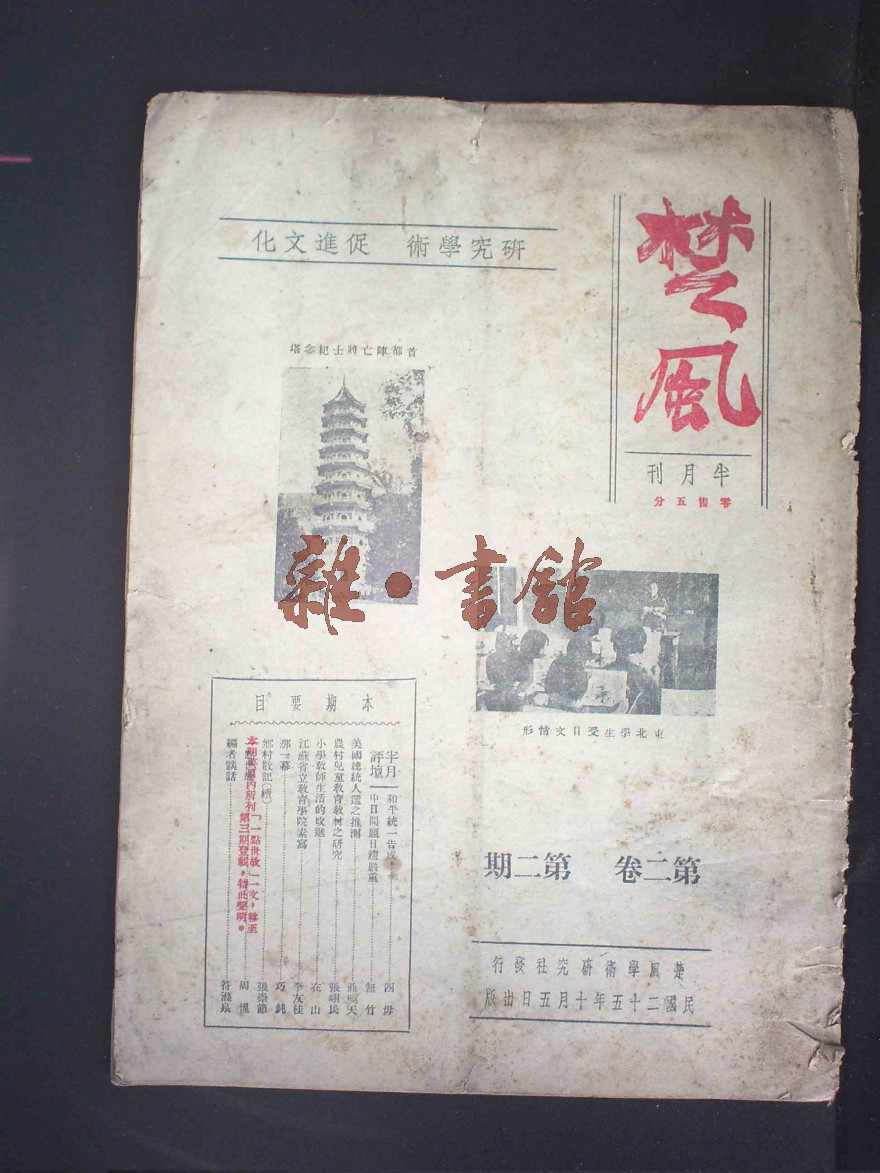 楚風
半月刊
零售五分
研究學術 促進文化
首都陣亡將士紀念塔
東北學生受日文情形
第二卷 第二期
楚風學術研究社發行
民國二十五年十月五日出版
本期要目
半月評壇
和平統一告成 四毋
中日問題日趨嚴重 無竹
美國總統人選之推測
農村兒童教育教材之研究 張明民
小學教師生活的改進 在山
江蘇省立教育學院素寫 李友桂
那一幕 巧鈍
鄉村散記(續) 張崇節
本期要目內所列「一點世故」一文,移至
第三期登載,特此聲明。
編者談話
雜·書館